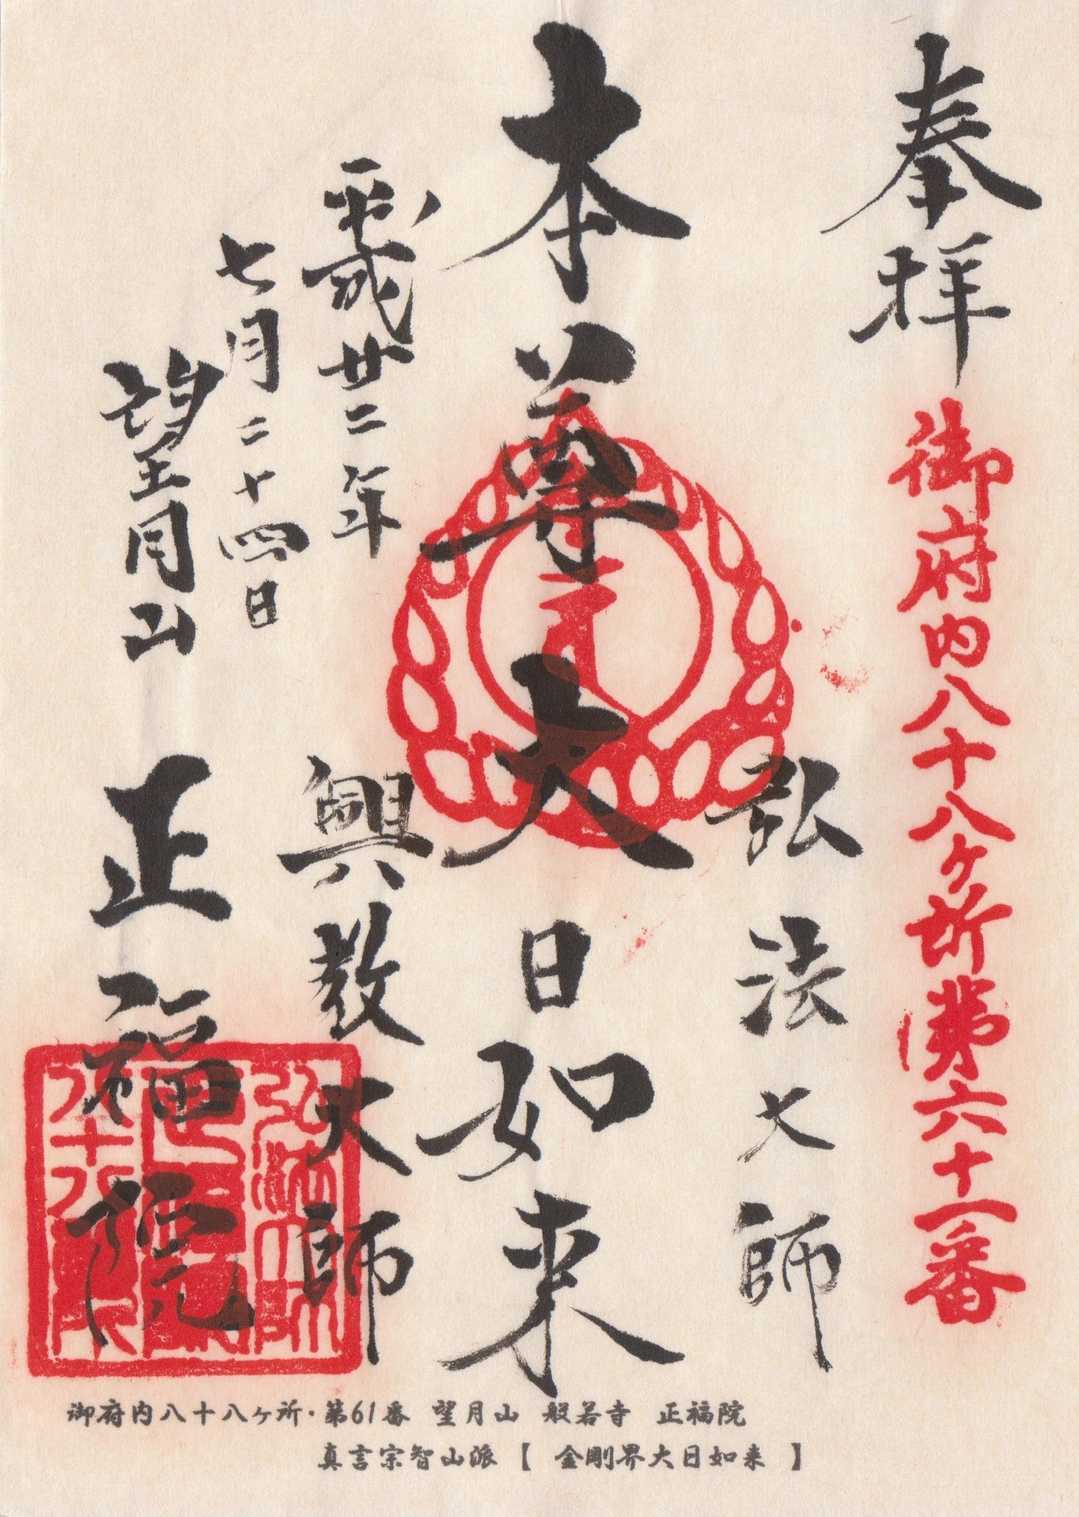 奉拝
御府内八十八ケ所第六十一番
弘法大師
本尊大日如来
興教大師
平成廿二年
七月二十四日
望月山
正福院
御府内八十八ヶ所・第61番 望月山 般若寺 正福院
真言宗智山派【 金剛界大日如来 】